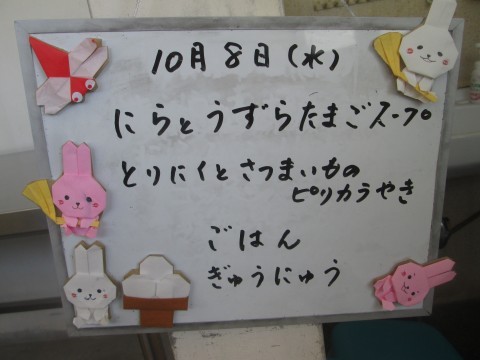 10月8日(水)
にらとうずらたまごスープ
とりにくとさつまいもの
ピリカラやき
ごはん
ぎゅうにゅう